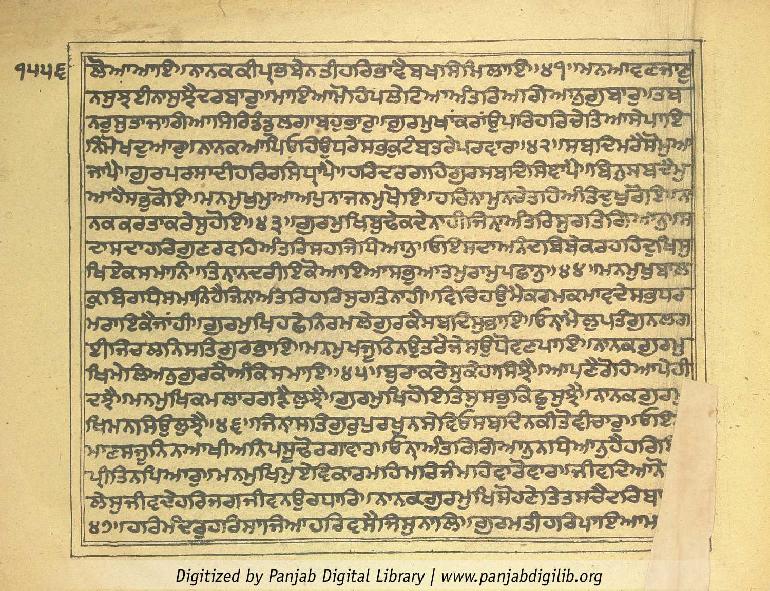 ੧੫੫੬
ਲੋਆਆਇ॥ਨਾਨਕਕੀਪ੍ਰਭਬੇਨਤੀਹਰਿਭਾਵੈਬਖਸਿਮਿਲਾਇ॥੪੧॥ਮਨਆਵਣਜਾਣੁ
ਨਸੁਝਈਨਾਸੁਝੈਦਰਬਾਰੁ॥ਮਾਇਆਮੋਹਿਪਲੇਟਿਆਅੰਤਰਿਅਗਿਆਨੁਗੁਬਾਰੁ॥ਤਬ
ਨਰੁਸੁਤਾਜਾਗਿਆਸਿਰਿਡੰਡੁਲਗਾਬਹੁਭਾਰੁ॥ਗੁਰਮੁਖਾਂਕਰਾਂਉਪਰਿਹਰਿਚੇਤਿਆਸੇਪਾਇ
ਨਿਮੋਖਦੁਆਰੁ॥ਨਾਨਕਆਪਿਓਹਿਉਧਰੇਸਭਕੁਟੰਬਤਰੇਪਰਵਾਰ॥੪੨॥ਸਬਦਿਮਰੈਸੋਮੁਆ
ਜਾਪੈ॥ਗੁਰਪਰਸਾਦੀਹਰਿਰਸਿਧ੍ਰਾਪੈ॥ਹਰਿਦਰਗਹਿਗੁਰਸਬਦਿਸਿਞਾਪੈ॥ਬਿਨੁਸਬਦੈਮੁ
ਆਹੈਸਭੁਕੋਇ॥ਮਨਮੁਖੁਮੁਆਅਪੁਨਾਜਨਮੁਖੋਇ॥ਹਰਿਨਾਮੁਨਚੇਤਹਿਅੰਤਿਦੁਖੁਰੋਇ॥ਨਾ
ਨਕਕਰਤਾਕਰੇਸੁਹੋਇ॥੪੩॥ਗੁਰਮੁਖਿਬੁਢੇਕਦੇਨਾਹੀਜਿਨਾਅੰਤਰਿਸੁਰਤਿਗਿਆਨੁ॥ਸ
ਦਾਸਦਾਹਰਿਗੁਣਰਵਹਿਅੰਤਰਿਸਹਜਿਧਿਆਨੁ॥ਓਇਸਦਾਅਨੰਦਿਬਿਬੇਕਰਹਹਿਦੁਖਿਸੁ
ਖਿਏਕਸਮਾਨਿ॥ਤਿਨਾਨਦਰੀਇਕੋਆਇਆਸਭੁਆਤਮੁਰਾਮੁਪਛਾਨੁ॥੪੪॥ਮਨਮੁਖੁਬਾਲ
ਕੁਬਿਰਧਿਸਮਾਨਿਹੈਜਿਨਾਅੰਤਰਿਹਰਿਸੁਰਤਿਨਾਹੀ॥ਵਿਚਿਹਉਮੈਕਰਮਕਮਾਵਦੇਸਭਧਰ
ਮਰਾਇਕੈਜਾਂਹੀ॥ਗੁਰਮੁਖਿਹਛੇਨਿਰਮਲੇਗੁਰਕੈਸਬਦਿਸੁਭਾਇ॥ਓਨਾਮੈਲੁਪਤੰਗੁਨਲਗ
ਈਜਿਚਲਨਿਸਤਿਗੁਰਭਾਇ॥ਮਨਮੁਖਜੂਠਿਨਉਤਰੈਜੇਸਉਧੋਵਣਪਾਇ॥ਨਾਨਕਗੁਰਮੁ
ਖਿਮੇਲਿਅਨੁਗੁਰਕੈਅੰਕਿਸਮਾਇ॥੪੫॥ਬੁਰਾਕਰੇਸੁਕੇਹਾਸਿਝੈ॥ਆਪਣੈਰੋਹਿਆਪੇਹੀ
ਦਝੈ॥ਮਨਮੁਖਿਕਮਲਾਰਗੜੈਲੁਝੈ॥ਗੁਰਮੁਖਿਹੋਇਤਿਸੁਸਭਕਿਛੁਸੁਝੈ॥ਨਾਨਕਗੁਰਮੁ
ਖਿਮਨਸਿਉਲੁਝੈ॥੪੬॥ਜਿਨਾਸਤਿਗੁਰੁਪੁਰਖੁਨਸੇਵਿਓਸਬਦਿਨਕੀਤੋਵੀਚਾਰੁ॥ਓਇ
ਮਾਣਸਜੂਨਿਨਆਖੀਅਨਿਪਸੂਢੋਰਗਾਵਾਰ॥ਓਨਾਅੰਤਰਿਗਿਆਨੁਨਧਿਆਨੁਹੈਹਰਿਸਿ
ਪ੍ਰੀਤਿਨਪਿਆਰੁ॥ਮਨਮੁਖਿਮੁਏਵਿਕਾਰਮਹਿਮਰਿਜੰਮਹਿਵਾਰੋਵਾਰ॥ਜੀਵਦਿਆਨੋ
ਲੈਸੁਜੀਵਦੇਹਰਿਜਗਜੀਵਨਉਰਧਾਰਿ॥ਨਾਨਕਗੁਰਮੁਖਿਸੋਹਣੇਤਿਤਸਚੈਦਰਿਬਾ
੪੭॥ਹਰਿਮੰਦਰੁਹਰਿਸਾਜਿਆਹਰਿਵਸੈਜਿਸੁਨਾਲਿ॥ਗੁਰਮਤੀਹਰਿਪਾਇਆਮ
Digitized by Panjab Digital Library | www.panjabdigilib.org